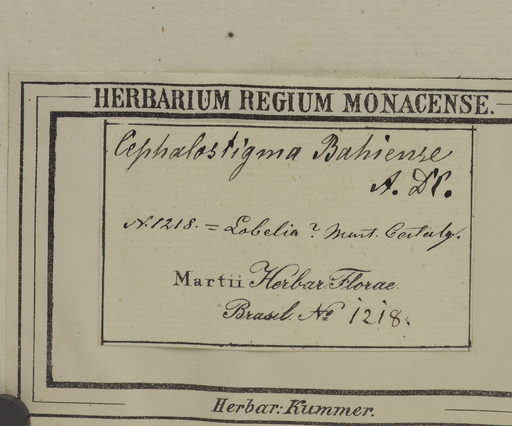 HERBARIUM REGIUM MONACENSE.
Cephalostigma Bahiense
A. DC.
N. 1218. = Lobelia ? Mart.
Martii Herbar. Florae
Brasil. No 1218.
Herbar: Kummer.